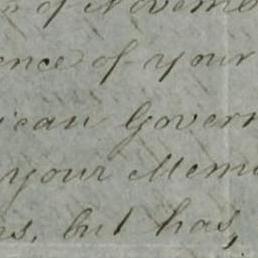 of Novem
ence of your
ican Govern
your Mem
s, but has,